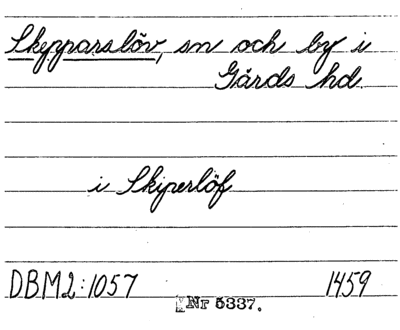 Skepparslöv, sn och by i
Gärds hd.
i Skiperlöf
DBM2:1057 1459
Nr 5337.